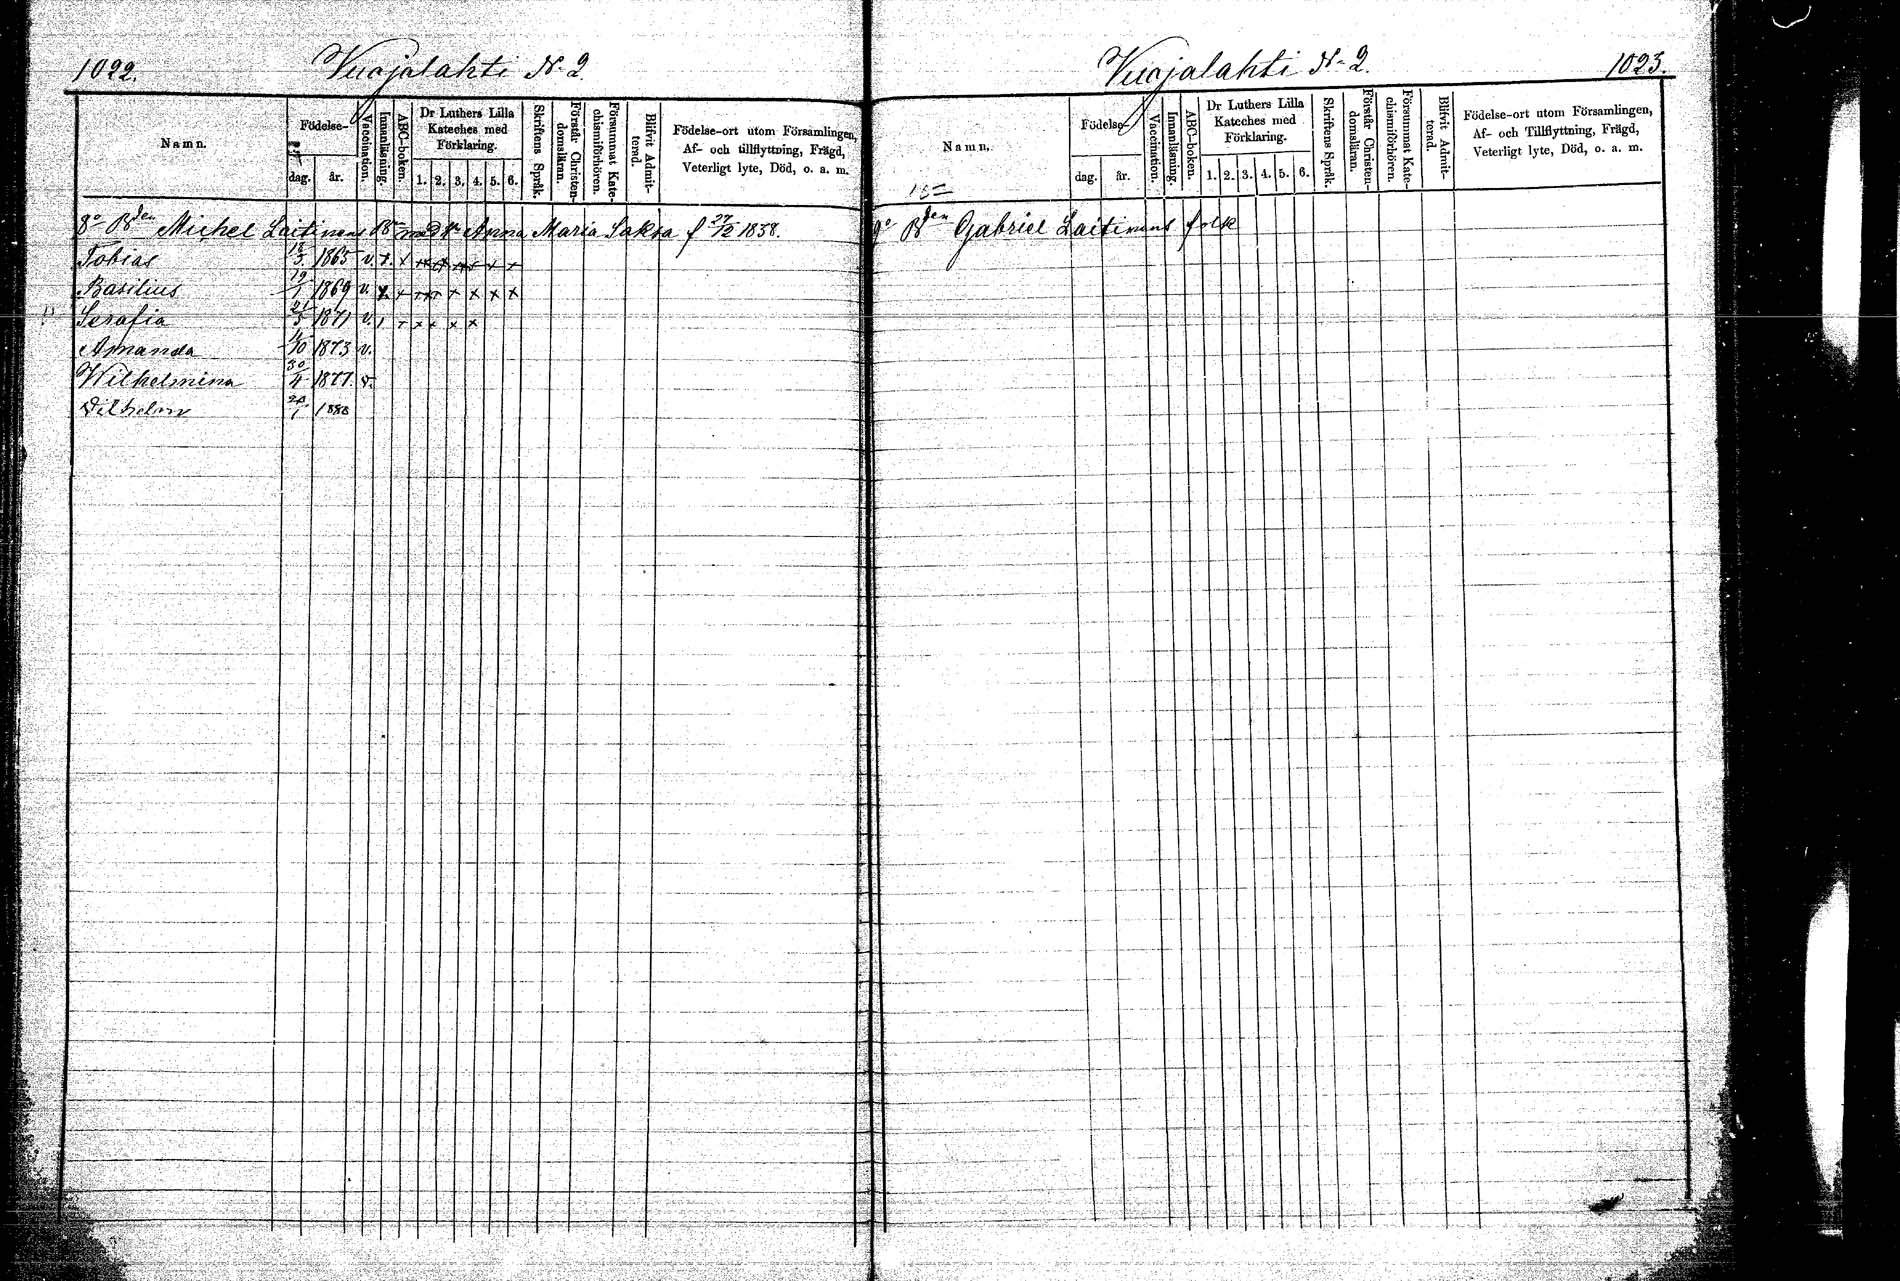 1022.
Vuojalahti № 2
Namn.
Födelse-
dag. år.
Vaccination.
Innanläsning.
ABC-boken.
Dr Luthers Lilla
Kateches med
Förklaring.
1. 2. 3. 4. 5. 6.
Skriftens Språk.
Förstår Christen-
domsläran.
Försummat Kate-
chismiförhören.
Blifvit Admit-
terad.
Födelse-ort utom Församlingen,
Af- och tillflyttning, Frägd,
Veterligt lyte, Död, o. a. m.
8o Bden Michel Laitinens med Anna Maria Saksa f 27/12 1838.
Tobias 18/3 1865 v. + x
Basilius 19/1 1869 v. x x x x x x
Serafia 21/5 1871 v. x x x x x
Amanda 1873 v.
Wilhelmina 30/4 1877. v.
Vilhelm
Vuojalahti № 2.
1023.
Namn.
Födelse-
dag. år.
Vaccination.
Innanläsning.
ABC-boken.
Dr Luthers Lilla
Kateches med
Förklaring.
1. 2. 3. 4. 5. 6.
Skriftens Språk.
Förstår Christen-
domsläran.
Försummat Kate-
chismiförhören.
Blifvit Admit-
terad.
Födelse-ort utom Församlingen,
Af- och Tillflyttning, Frägd,
Veterligt lyte, Död, o. a. m.
9o Bden Gabriel Laitinens folk